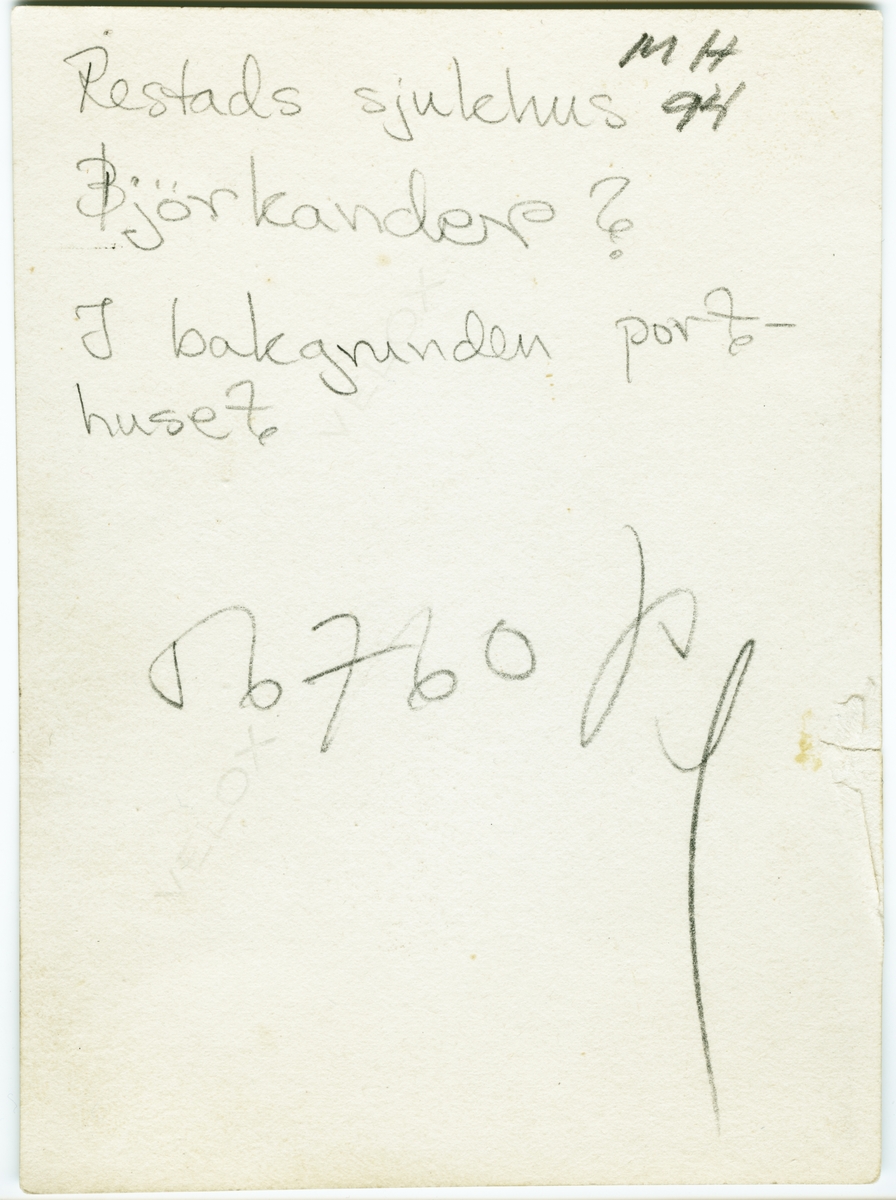 MH
Restads sjukhus 94
Björkander?
I bakgrunden port-
huset
VELOX
VELOX